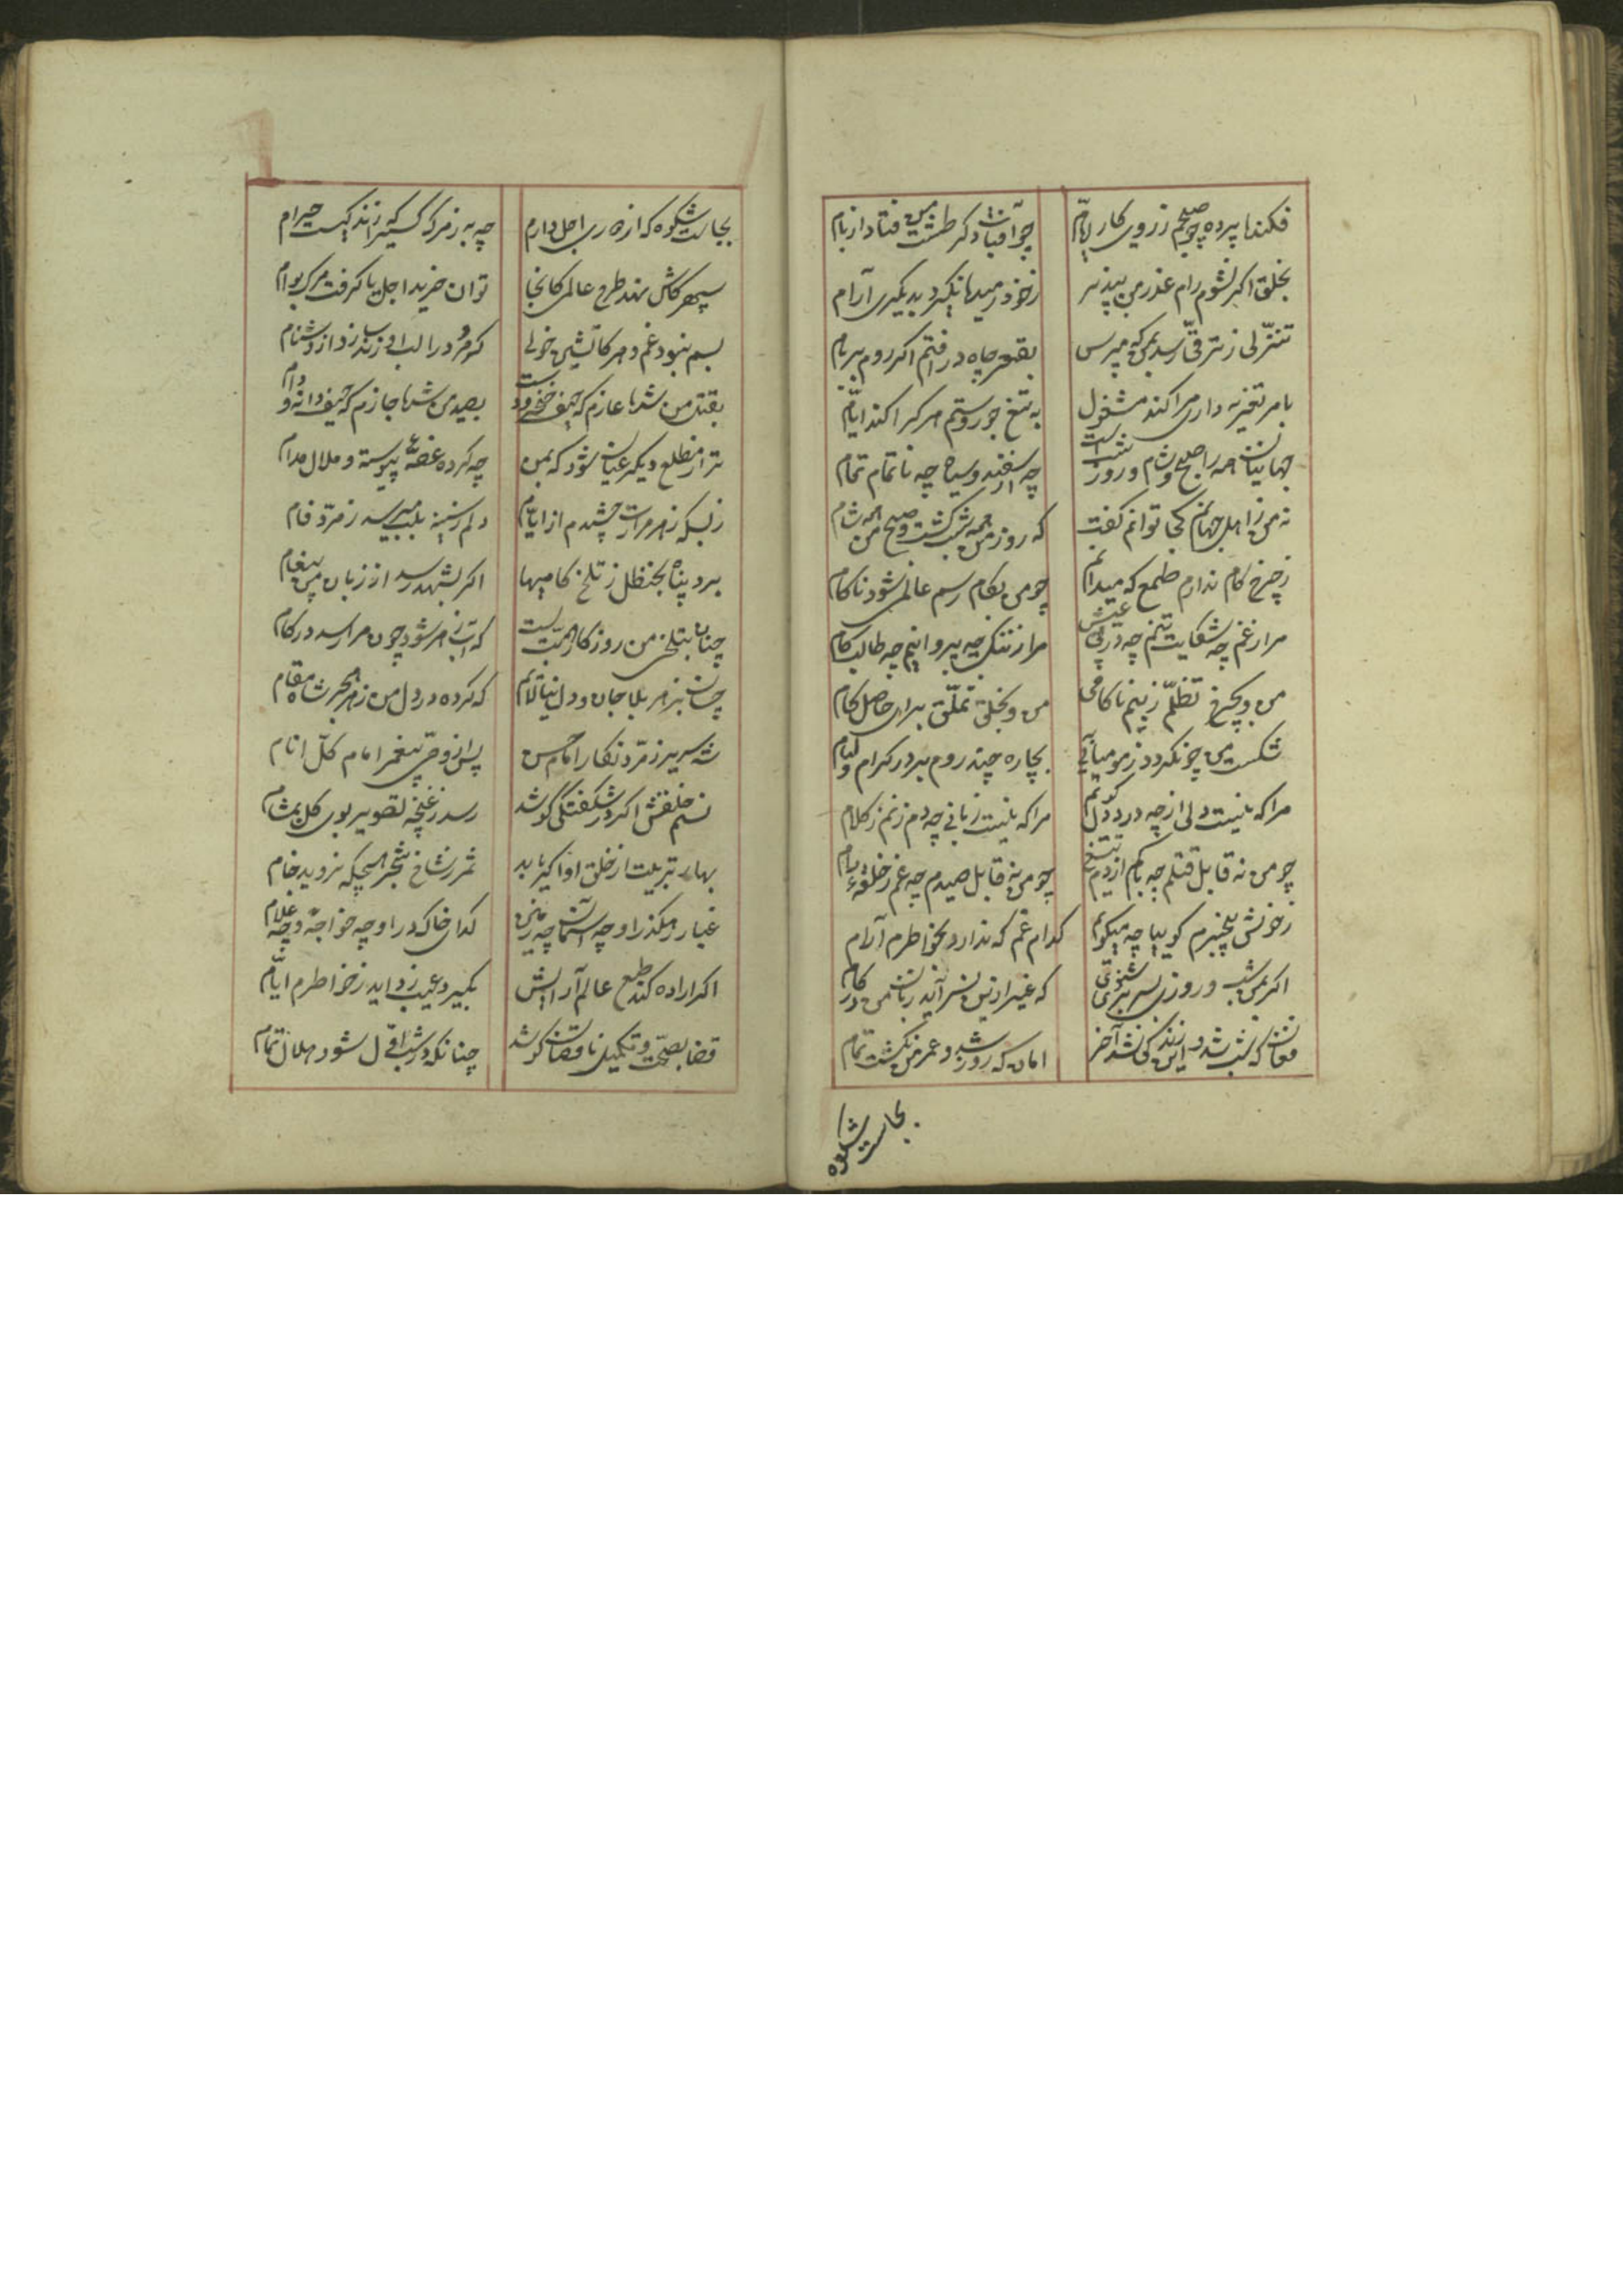 فکند پرده چو صبحم ز روی کار ایام چو آفتاب دکر طشت من فتاد از بام
بخلق اکر نشوم رام عذر من بپذیر ز خود رمیده نکیرد بدیکری آرام
تنزلی ز ترقی رسد بمن که مپرس بقعر چاه در افتم اکر روم بر بام
بامر تعزیه داری مرا کند مشغول به تیغ جور و ستم هر کرا کشد ایام
جهانیان همه را صبح و شام و روز و شب است چه از سفید و سیاه چه ناتمام تمام
نه من ز اهل جهانم کجا توانم کفت که روز من همه شب کشت و صبح من همه شام
ز چرخ کام ندارم طمع که میدانم چو من بکام رسم عالمی شود ناکام
مرا ز غم چه شکایت نیم چه در پی عیش مرا ز ننک چه پروا نیم چه طالب نام
من و بچرخ تظلم ز بیم ناکامی من و بخلق تملق برای حاصل کام
شکست من چو نکردد ز مومیائی به بچاره چند روم بر در کرام و لئام
مرا که نیست دلی از چه درد دل کویم مرا که نیست زبانی چه دم زنم ز کلام
چو من نه قابل قتلم چه باکم از دم تیغ چو من نه قابل صیدم چه غم ز حلقهٔ دام
ز خویش بیخبرم کو بیا چه میکوئی کدام غم که ندارد بخاطرم آرام
اکر بمن شب و روزی بسر بری شنوی که غیر ازین نسراید زبان من در کام
فغان که شب شد و این زندکی نشد آخر امان که روز شد و عمر من نکشت تمام
بجاست شکوه
بجاست شکوه که از دوری اجل دارم چه به ز مرک کسیرا که زندکیست حرام
سپهر کاش نهد طرح عالمی کانجا توان خرید اجل یا کرفت مرک بوام
بسم نبود غم دهر کاتشین خوئی
بقتل من شده عازم که حیف خنجر و دست بصید من شده جازم که حیف دانه و دام
ترا ز مطلع دیکر عیان شود که بمن چه کرده غصهٔ پیوسته و ملال مدام
ز بسکه زهر مرارت چشیدم از ایام دلم ز سینه بلب میرسد زمرد فام
برد پناه بحنظل ز تلخ کامیها اکر بشهد رسد از زبان من پیغام
چنان بتلخی من روزکار همت بست که آب زهر شود چون مرا رسد در کام
چسان بزهر بلا جان و دل نیالایم که کرده در دل من زهر هجر شاه مقام
شه سریر زمرد نکار امام حسن پس از وصی پیغمبر امام کل انام
نسیم خلقش اکر در شکفتکی کوشد رسد ز غنچهٔ تصویر بوی کل بمشام
بهار تربیت از خلق او اکر یابد ثمر ز شاخ شجر هیچکه نروید خام
غبار رهکذر او چه آسمان چه زمین کدای خاک در او چه خواجه و چه غلام
اکر اراده کند طبع عالم آرایش بکیر و عیب زداید ز خواطرم ایام
قضا بصحت و تکمیل ناقصان کوشد چنانکه در شب اول شود هلال تمام